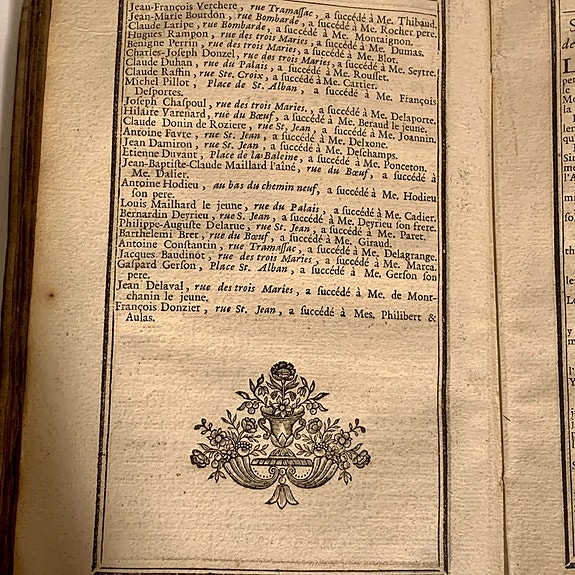 Jean-François Verchere, rue Tramaſſac, a ſuccédé à Me. Thibaud.
Jean-Marie Bourdon, rue Bombarde, a ſuccédé à Me. Rocher pere.
Claude Laripe, rue Bombarde, a ſuccédé à Me. Montaignon.
Hugues Rampon, rue des trois Maries, a ſuccédé à Me. Dumas.
Benigne Perrin, rue des trois Maries, a ſuccédé à Me. Blot.
Charles-Joseph Donzel, rue des trois Maries, a ſuccédé à Me. Seytre.
Claude Duhan, rue du Palais, a ſuccédé à Me. Rouſſet.
Claude Raffin, rue Ste. Croix, a ſuccédé à Me. Cartier.
Michel Pillot, Place de St. Alban, a ſuccédé à Me. François
Deſportes.
Joſeph Chaſpoul, rue des trois Maries, a ſuccédé à Me. Delaporte.
Hilaire Varenard, rue du Bœuf, a ſuccédé à Me. Beraud le jeune.
Claude Donin de Roziere, rue St. Jean, a ſuccédé à Me. Joannin.
Antoine Favre, rue St. Jean, a ſuccédé à Me. Delxone.
Jean Damiron, rue St. Jean, a ſuccédé à Me. Deſchamps.
Etienne Duvant, Place de la Baleine, a ſuccédé à Me. Ponceton.
Jean-Baptiſte-Claude Maillard l'aîné, rue du Bœuf, a ſuccédé à
Me. Dalier.
Antoine Hodieu, au bas du chemin neuf, a ſuccédé à Me. Hodieu
ſon pere.
Louis Mailhard le jeune, rue du Palais, a ſuccédé à Me. Cadier.
Bernardin Deyrieu, rue S. Jean, a ſuccédé à Me. Deyrieu ſon frere.
Philippe-Auguſte Delarue, rue St. Jean, a ſuccédé à Me. Paret.
Barthelemi Bret, rue du Bœuf, a ſuccédé à Me. Giraud.
Antoine Constantin, rue Tramaſſac, a ſuccédé à Me. Delagrange.
Jacques Baudinot, rue des trois Maries, a ſuccédé à Me. Marca.
Gaſpard Gerſon, Place St. Alban, a ſuccédé à Me. Gerſon ſon
pere.
Jean Delaval, rue des trois Maries, a ſuccédé à Me. de Mont-
chanin le jeune.
François Donzier, rue St. Jean, a ſuccédé à Mes. Philibert &
Aulas.